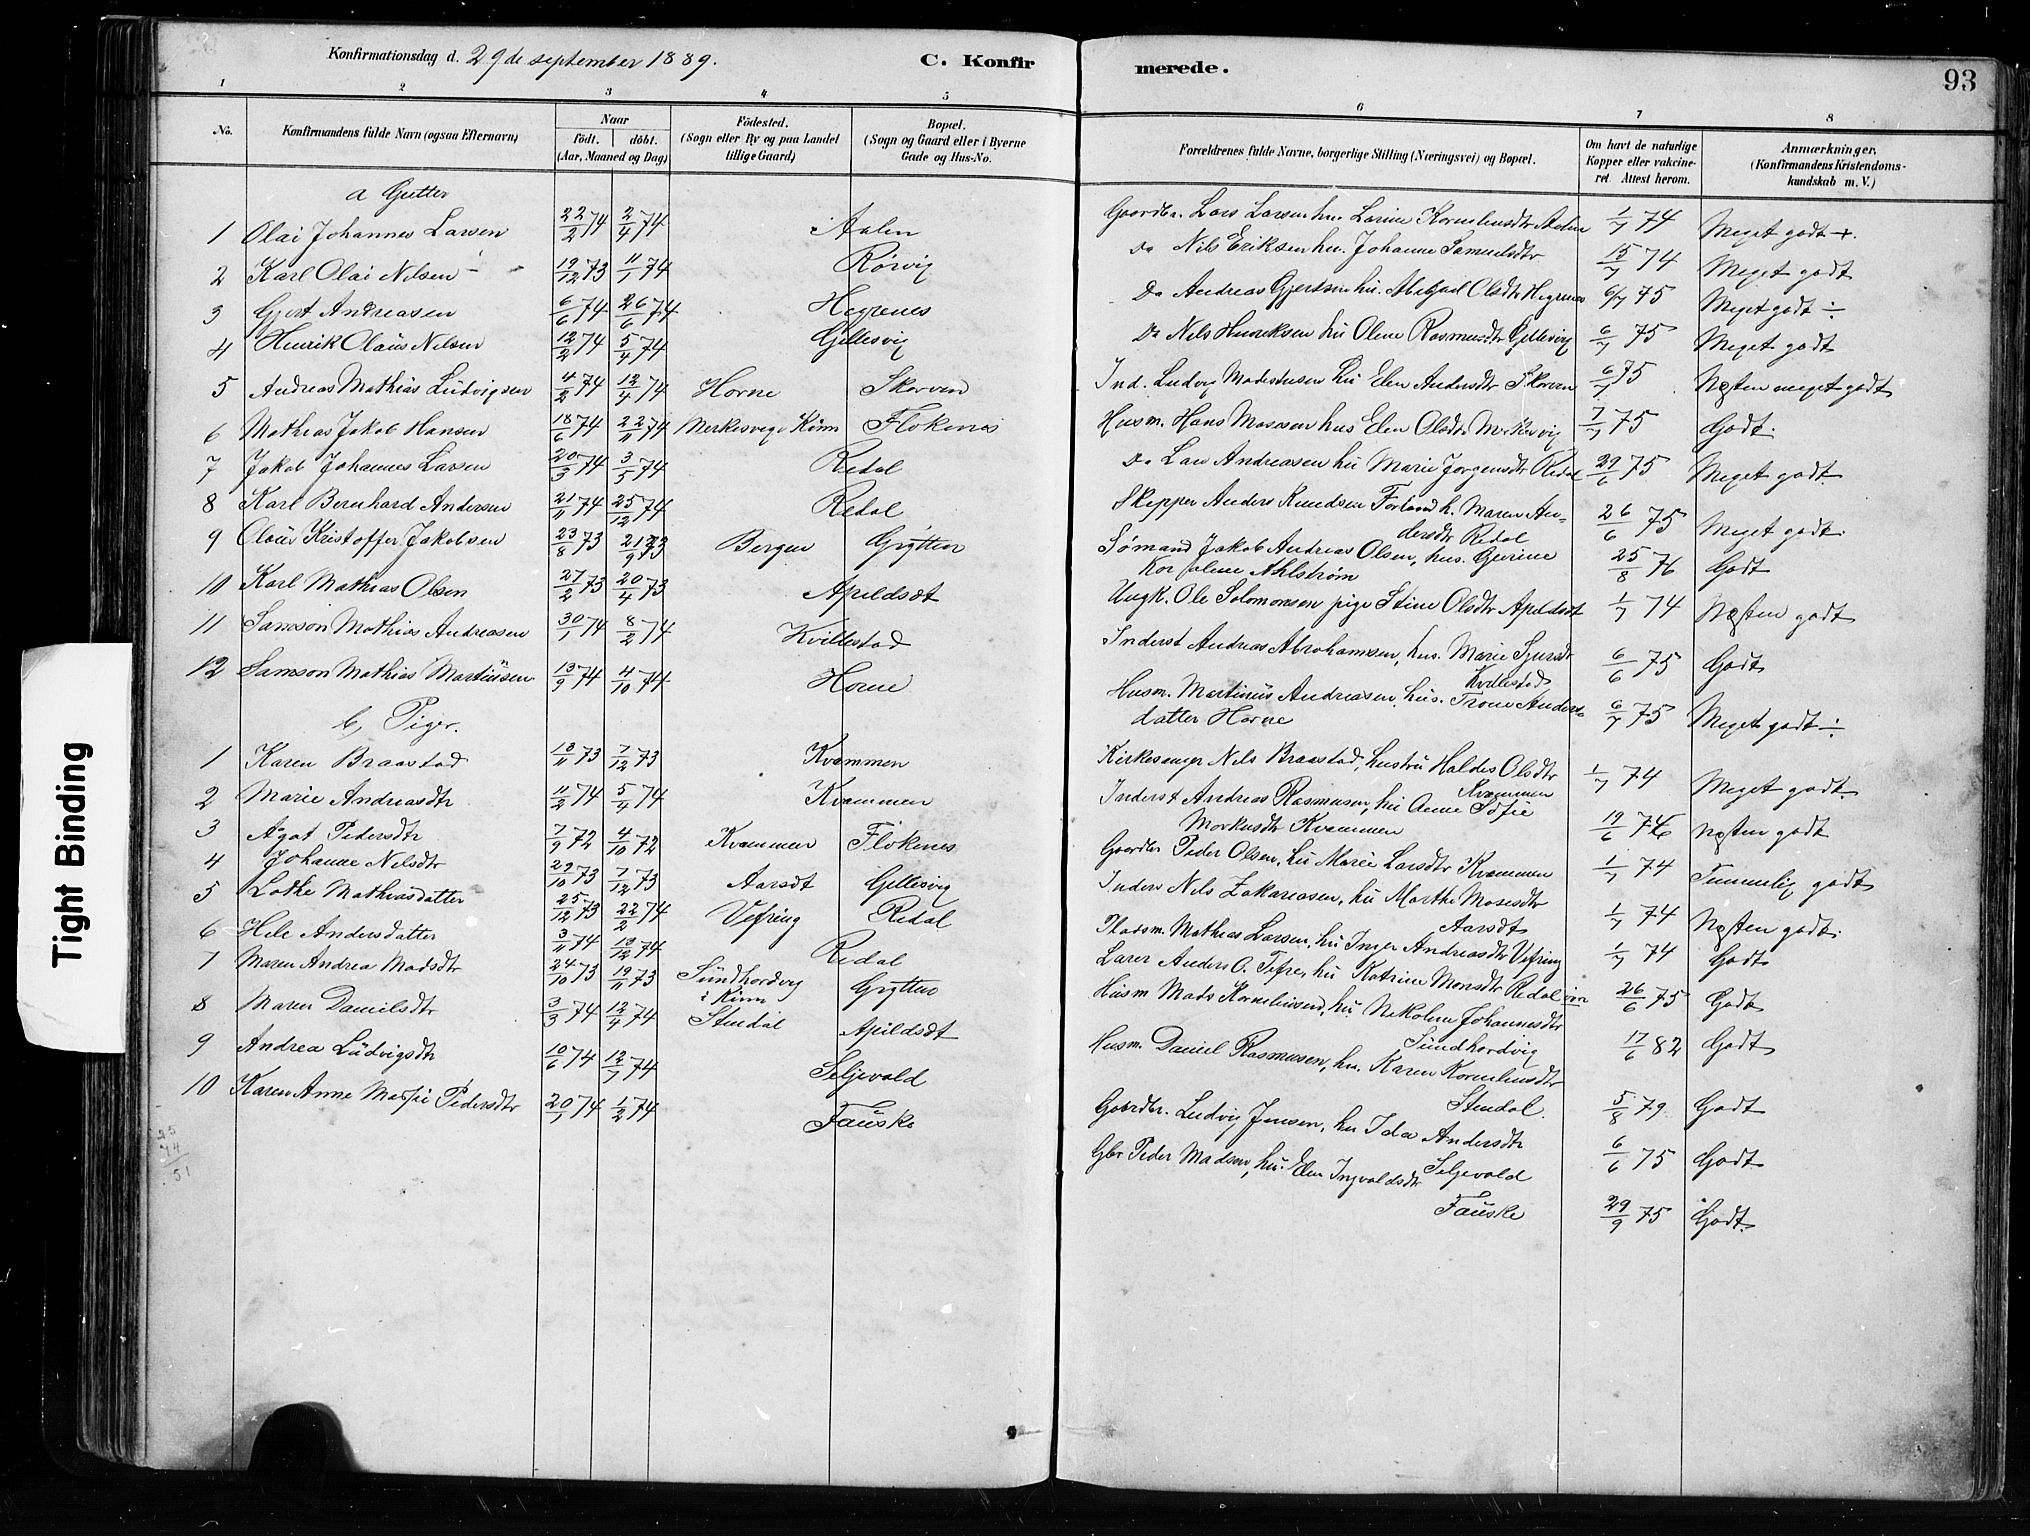 Konfirmationsdag d. 29de september 1889. C. Konfirmerede. 93
1 2 3 4 5 6 7 8
No. Konfirmandens fulde Navn (ogsaa Efternavn) Naar født. døbt. (Aar, Maaned og Dag) Fødested. (Sogn eller By og paa Landet tillige Gaard) Bopæl. (Sogn og Gaard eller i Byerne Gade og Hus-No. Forældrenes fulde Navne, borgerlige Stilling (Næringsvei) og Bopæl. Om havt de naturlige Kopper eller vakcineret. Attest herom. Anmærkninger. (Konfirmandens Kristendomskundskab m. V.)
a Gutter
1 Olai Johannes Larsen 22/2 74 2/4 74 Aalen Gaardbr. Lars Larsen hu. Larine Korneliusdtr Aalen 1/7 74 Meget godt +.
2 Karl Olai Nilsen 19/12 73 11/1 74 Rörvig Do Nils Eriksen hu. Johanne Samuelsdtr 15/7 74 Meget godt
3 Gjert Andreasen 6/6 74 26/6 74 Hegrenes Do Andreas Gjertsen hu. Abigael Olsdtr Hegrenes 6/7 75 Meget godt ÷
4 Henrik Olaus Nilsen 12/2 74 5/4 74 Gillesvig Do Nils Henriksen hu Oline Rasmusdtr Gillesvig 6/7 75 Meget godt
5 Andreas Mathias Ludvigsen 4/2 74 12/4 74 Horne Skorven Ind. Ludvig Madsen hu Elen Andersdtr Skorven 6/7 75 Næsten meget godt
6 Mathias Jakob Hansen 18/6 74 22/11 74 Merkesvig i Kinn Flokenes Husm. Hans Mossen hus Elen Olsdtr Merkesvig 7/7 75 Godt.
7 Jakob Johannes Larsen 20/3 74 3/5 74 Redal Do Lars Andreasen hu Marie Jørgensdtr Redal 29/6 75 Meget godt
8 Karl Bernhard Andersen 21/11 74 25/12 74 Redal Skipper Anders Knudsen Forland h. Maren Andersdtr Redal 26/6 75 Meget godt.
9 Olaus Kristoffer Jakobsen 23/8 73 21/9 73 Bergen Grytten Sømand Jakob Andreas Olsen, hus. Gurine Ahlstrøm 25/8 76 Godt
10 Karl Mathias Olsen 27/2 73 20/4 73 Apildsdt Ungk. Ole Solomonsen pige Stine Olsdtr Apildsdt 1/7 74 Næsten godt
11 Samson Mathias Andreasen 30/1 74 8/2 74 Kvillestad Inderst Andreas Abrahamsen, hus. Marie Sjursdtr Kvillestad 6/6 75 Godt
12 Samson Mathias Martinusen 13/9 74 4/10 74 Horne Husm. Martinus Andreasen, hus. Trone Andersdatter Horne 6/7 75 Meget godt ÷
b, Piger.
1 Karen Braastad 13/11 73 7/12 73 Kvammen Kirkesanger Nils Braastad, hustru Haldis Olsdtr Kvammen 1/7 74 Meget godt.
2 Marie Andreasdtr 11/2 74 5/4 74 Kvammen Inderst Andreas Rasmusen, hu Anne Sofie Markusdtr Kvammen 19/6 76 Næsten godt
3 Agat Pedersdtr 7/9 72 4/10 72 Kvammen Flokenes Gaardbr Peder Olsen, hu Marie Larsdtr Kvammen 1/7 74 Temmelig godt
4 Johanne Nilsdtr 29/10 73 7/12 73 Aarsdt Gillesvig Inders Nils Zakariasen, hu Marthe Mosesdtr Aarsdt 1/7 74 Næsten godt.
5 Lothe Mathiasdatter 25/12 73 22/2 74 Vefring Redal Pladsm. Mathias Larsen, hu Inger Andreasdtr Vefring 1/7 74 Godt
6 Hele Andersdatter 3/11 74 13/12 74 Redal Lærer Anders O. Tefre, hu Katrine Monsdtr Redal 26/6 75 Godt
7 Maren Andrea Madsdtr 24/10 73 19/11 73 Sündhordvig i Kinn Grytten Husm Mads Korneliussen, hu Nikoline Johannesdtr Sündhordvig 17/6 82 Godt
8 Maren Danielsdtr 3/3 74 12/4 74 Stendal Apildsdt Husm. Daniel Rasmussen, hu. Karen Korneliusdtr Stendal. 5/8 79 Godt
9 Andrea Ludvigsdtr 10/6 74 12/7 74 Seljevold Gaardbr. Ludvig Jensen, hu Ida Andersdtr Seljevold 6/6 75 Godt
10 Karen Anne Pedersdtr 20/1 74 1/2 74 Fauske Gbr Peder Madsen, hu. Elen Ingvaldsdtr Fauske 29/9 75 Godt.
Tight Binding